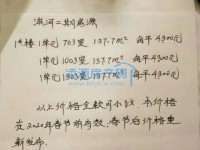 滨河二期房源
1#楼 1单元 703室 137.7m² 每平4300元
1单元 1003室 137.7m² 每平4300元
1单元 1303室 137.7m² 每平4300元
以上价格全款可小议,本价格
在2020年春节前有效,春节后价格更
新发布.